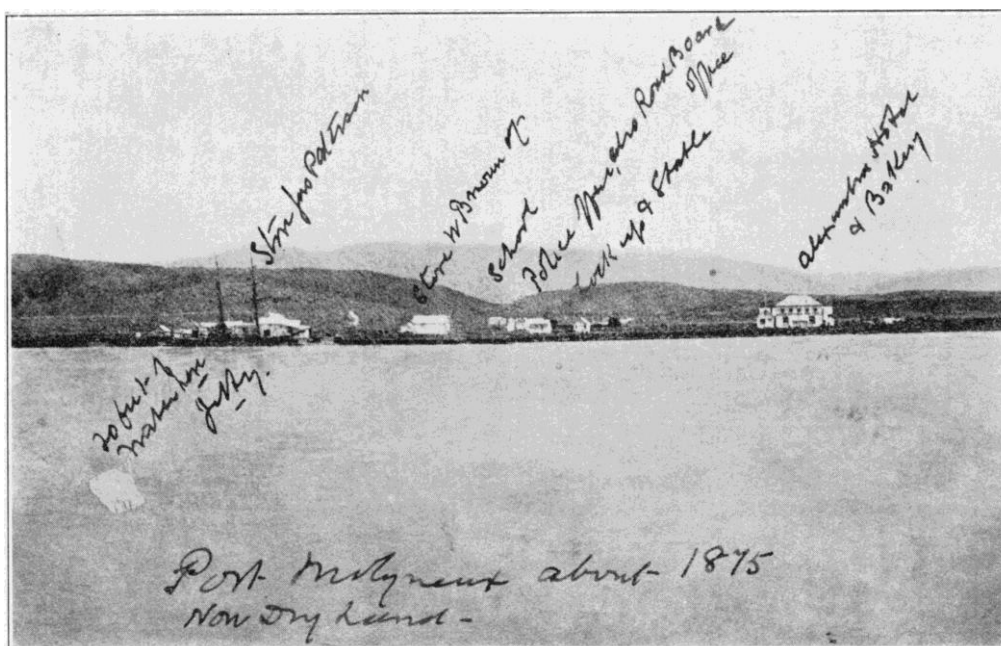 Store Jas Paterson
Store W Brown &
School
Police Office, also Road Board
office
Lock up & Stable
Alexandra Hotel
& Bakery
20 feet of
Water here
Jetty.
Port Molyneux about 1875
Now Dry Land -